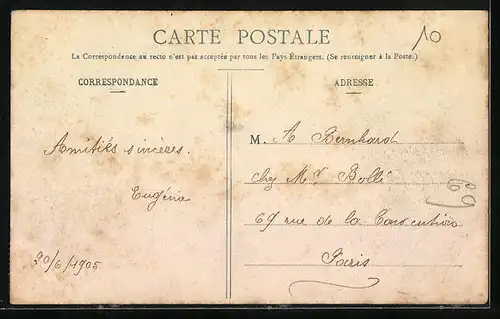 CARTE POSTALE
La Correspondance au recto n'est pas acceptée par tous les Pays Étrangers. (Se renseigner à la Poste.)
CORRESPONDANCE
ADRESSE
10
Amitiés sincères.
Eugénie
20/6/1905
M. A Bernhard
chez Mr Bollé
69 rue de la Convention
Paris
69